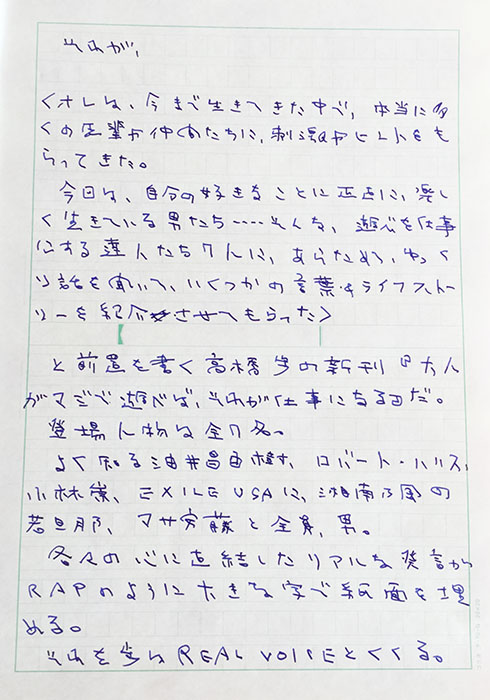 それが、
くオレは、今まで生きてきた中で、本当に多
くの先輩や仲間たちに、刺激やヒントをも
らってきた。
今回は、自分の好きなことに正直に、楽し
く生きている男たち‥‥そんな、遊心を仕事
にする達人たち7人に、あらためて、ゆっく
り話を聞いて、いくつかの言葉やライフストー
リーを紹介させてもらった>
と前置を書く高橋歩の新刊『大人
がマジで遊べば、それが仕事になる』だ。
登場人物は全7名。
よく知る油井昌由樹、ロバート・ハリス、
小林崇、EXILE USAに、湘南乃風の
若旦那、マサ安藤と全員、男。
各々の心に直結したリアルな発言が
RAPのように大きな字で紙面を埋
める。
それを歩はREAL VOICEとくくる。